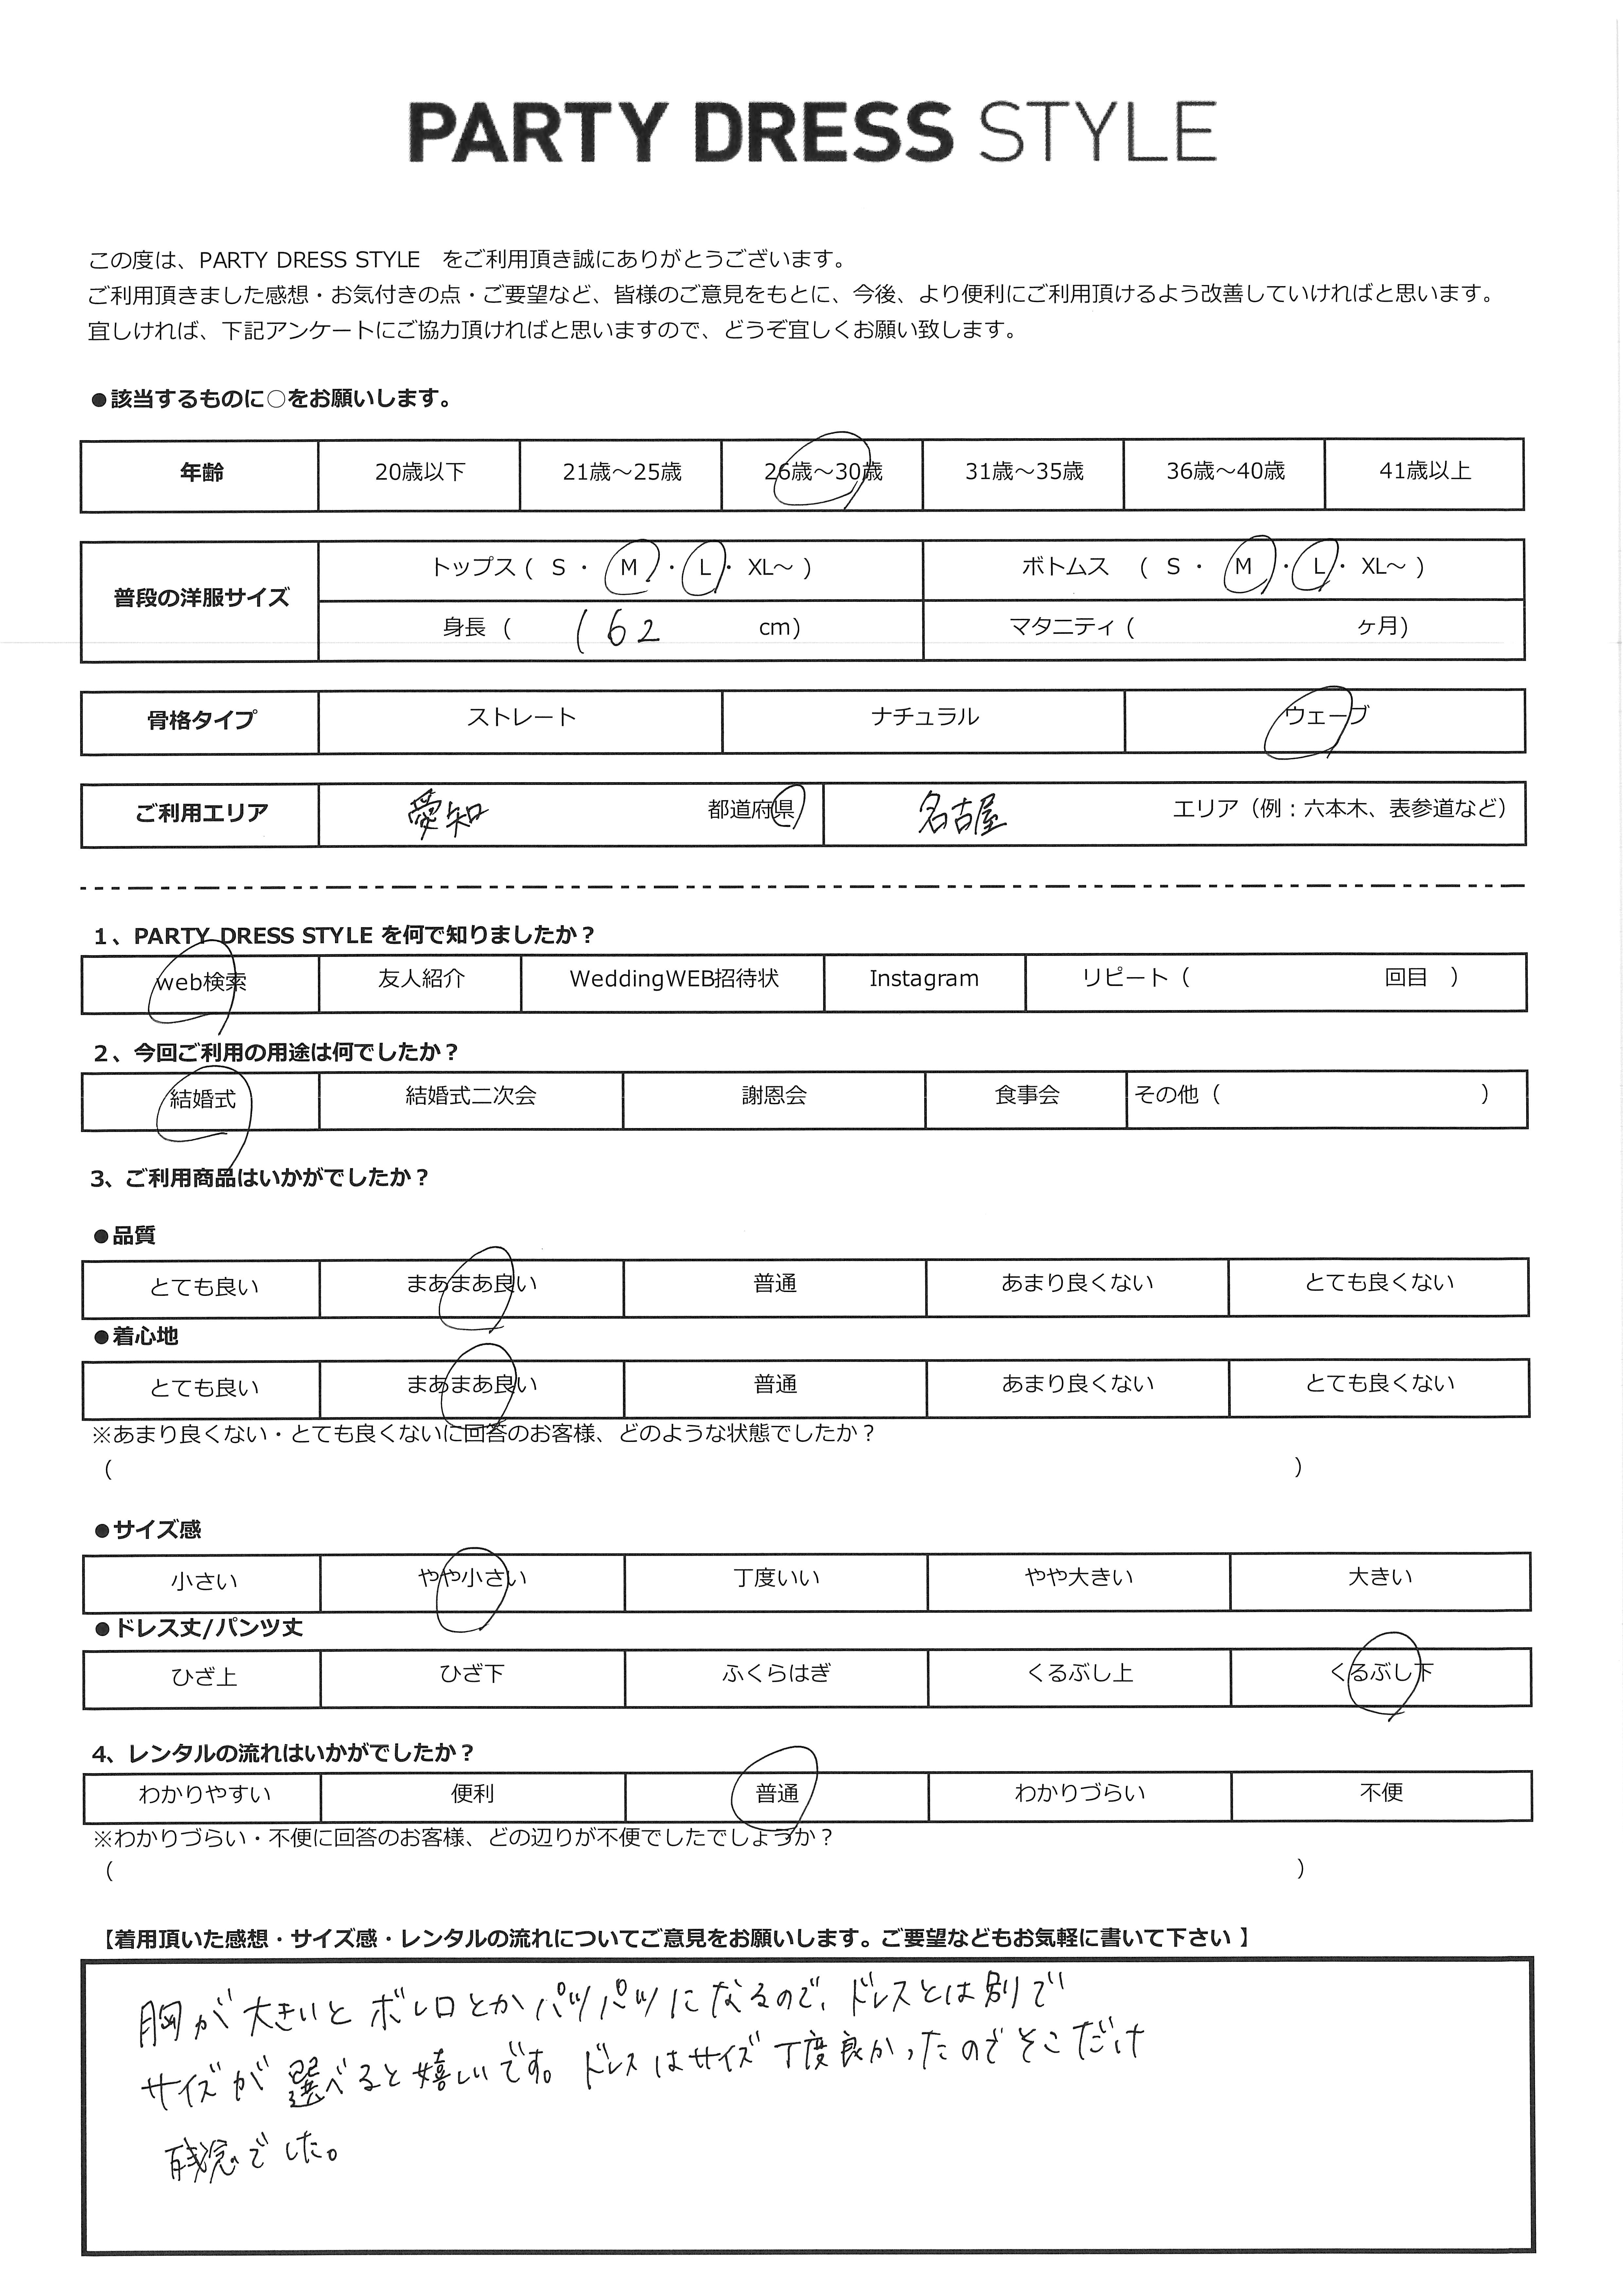 PARTY DRESS STYLE
この度は、PARTY DRESS STYLE　をご利用頂き誠にありがとうございます。
ご利用頂きました感想・お気付きの点・ご要望など、皆様のご意見をもとに、今後、より便利にご利用頂けるよう改善していければと思います。
宜しければ、下記アンケートにご協力頂ければと思いますので、どうぞ宜しくお願い致します。
●該当するものに○をお願いします。
年齢 20歳以下 21歳～25歳 26歳～30歳 31歳～35歳 36歳～40歳 41歳以上
普段の洋服サイズ トップス ( S ・ M ・ L ・ XL～ ) ボトムス ( S ・ M ・ L ・ XL～ )
身長 ( 162 cm) マタニティ ( ヶ月)
骨格タイプ ストレート ナチュラル ウェーブ
ご利用エリア 愛知 都道府県 名古屋 エリア（例：六本木、表参道など）
1、PARTY DRESS STYLE を何で知りましたか？
web検索 友人紹介 WeddingWEB招待状 Instagram リピート（ 回目 ）
2、今回ご利用の用途は何でしたか？
結婚式 結婚式二次会 謝恩会 食事会 その他（ ）
3、ご利用商品はいかがでしたか？
●品質
とても良い まあまあ良い 普通 あまり良くない とても良くない
●着心地
とても良い まあまあ良い 普通 あまり良くない とても良くない
※あまり良くない・とても良くないに回答のお客様、どのような状態でしたか？
（ ）
●サイズ感
小さい やや小さい 丁度いい やや大きい 大きい
●ドレス丈/パンツ丈
ひざ上 ひざ下 ふくらはぎ くるぶし上 くるぶし下
4、レンタルの流れはいかがでしたか？
わかりやすい 便利 普通 わかりづらい 不便
※わかりづらい・不便に回答のお客様、どの辺りが不便でしたでしょうか？
（ ）
【着用頂いた感想・サイズ感・レンタルの流れについてご意見をお願いします。ご要望などもお気軽に書いて下さい 】
胸が大きいとボレロとかパツパツになるので、ドレスとは別で
サイズが選べると嬉しいです。ドレスはサイズ丁度良かったのでそこだけ
残念でした。